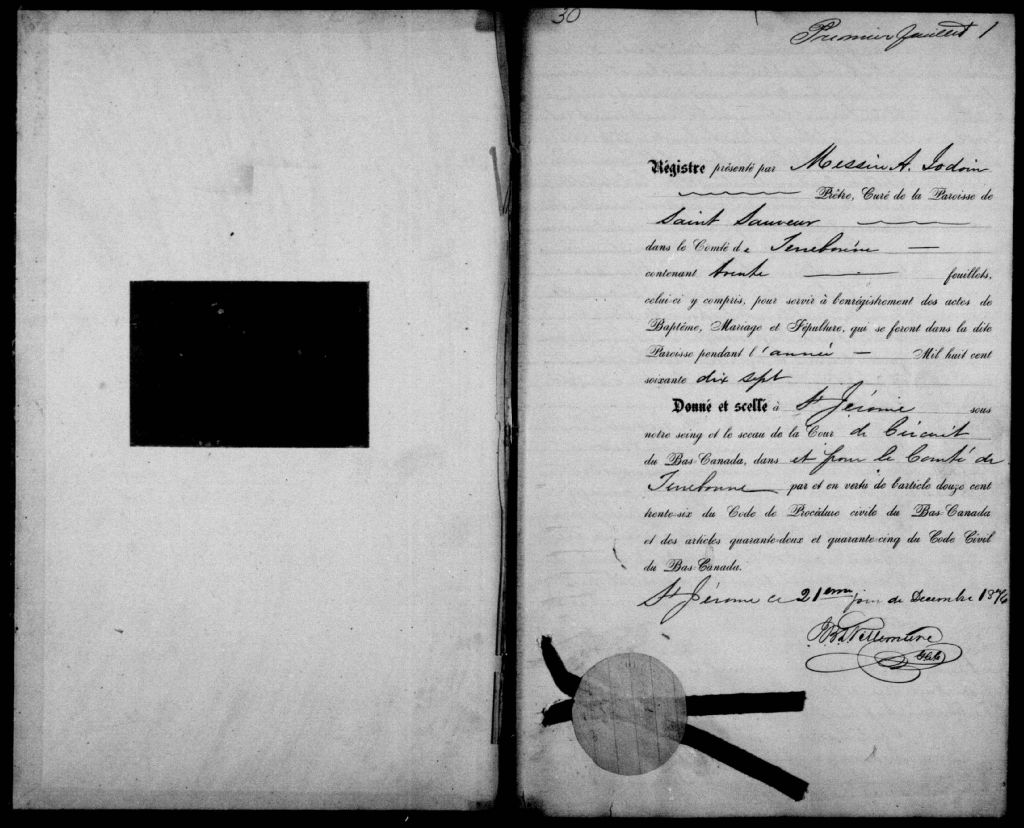 30
Premier feuillet 1
Régistre présenté par Messire A. Jodoin
Prêtre, Curé de la Paroisse de
Saint Sauveur
dans le Comté de Terrebonne
contenant trente feuillets,
celui-ci y compris, pour servir à l'enrégistrement des actes de
Baptême, Mariage et Sépulture, qui se feront dans la dite
Paroisse pendant l'année Mil huit cent
soixante dix sept
Donné et scellé à St Jérome sous
notre seing et le sceau de la Cour de Circuit
du Bas-Canada, dans et pour le Comté de
Terrebonne par et en vertu de l'article douze cent
trente-six du Code de Procédure civile du Bas-Canada
et des articles quarante-deux et quarante-cinq du Code Civil
du Bas-Canada.
St Jérome ce 21eme jour de Decembre 1876